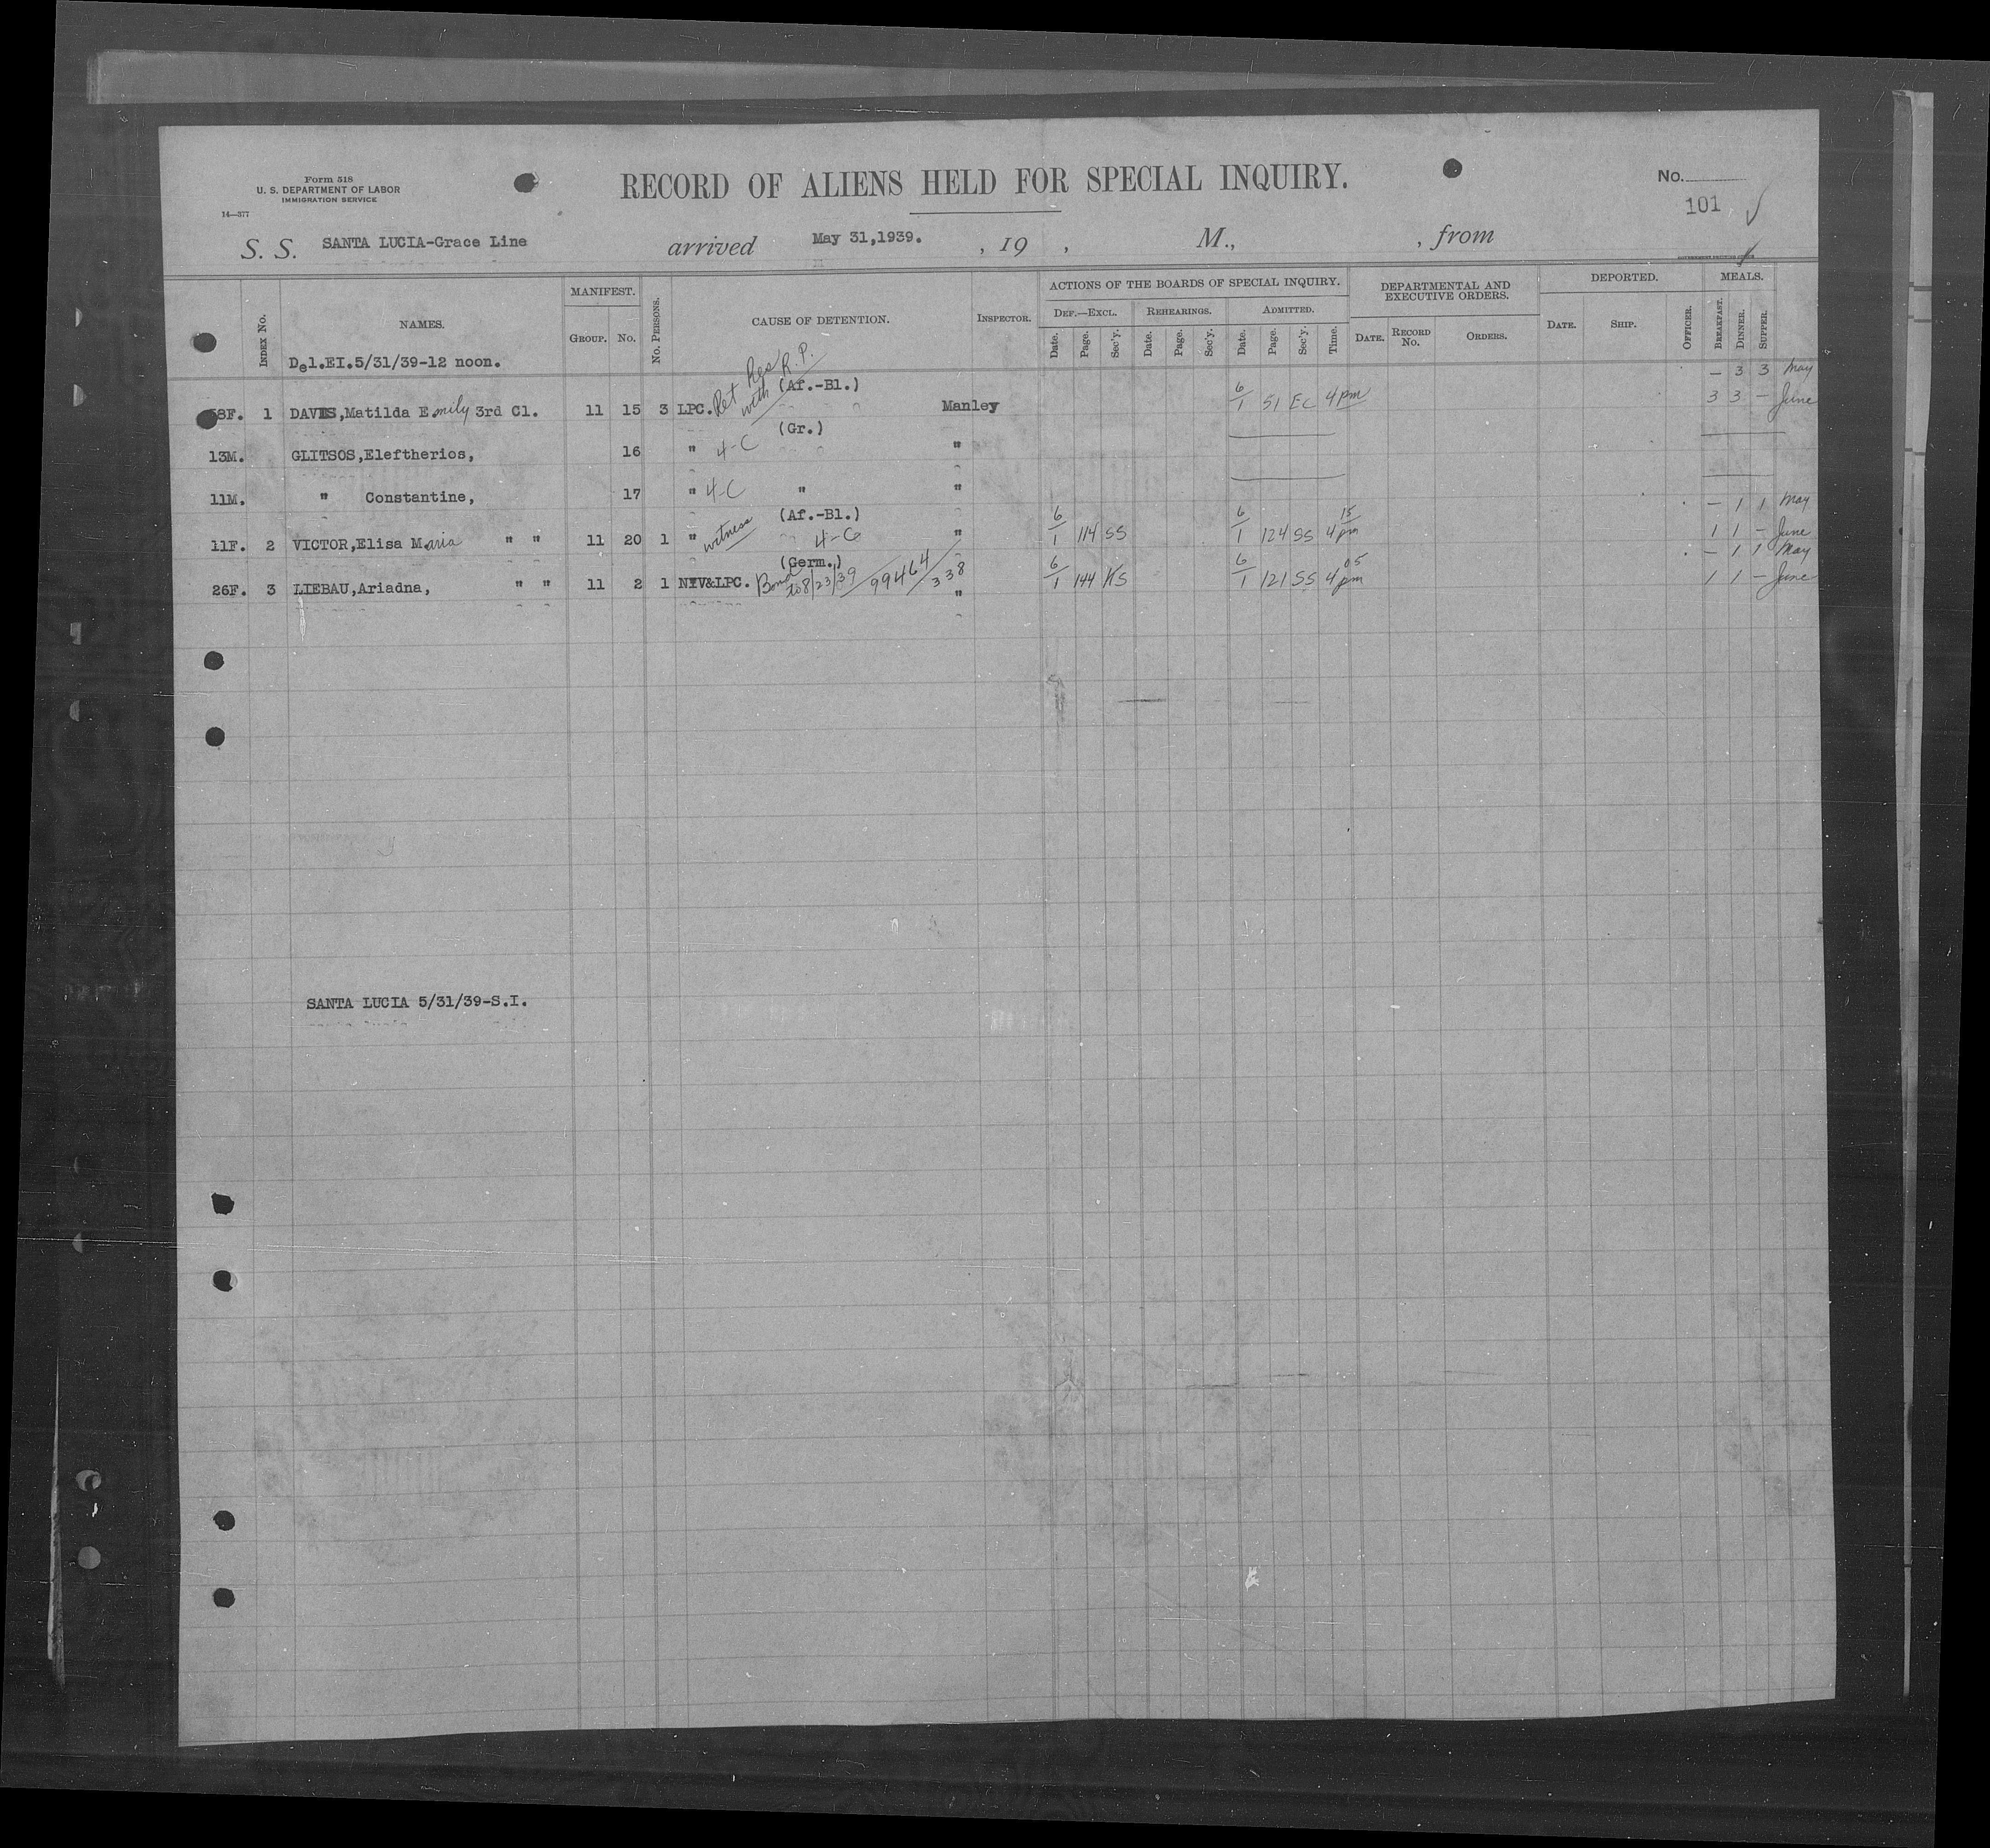 Form 518
U. S. DEPARTMENT OF LABOR
IMMIGRATION SERVICE
14—377
RECORD OF ALIENS HELD FOR SPECIAL INQUIRY.
No.
101
S. S. SANTA LUCIA-Grace Line arrived May 31,1939. , 19 , M., , from
GOVERNMENT PRINTING OFFICE
INDEX No. NAMES. MANIFEST. GROUP. No. No. PERSONS. CAUSE OF DETENTION. INSPECTOR. ACTIONS OF THE BOARDS OF SPECIAL INQUIRY. DEF.—EXCL. Date. Page. Sec'y. REHEARINGS. Date. Page. Sec'y. ADMITTED. Date. Page. Sec'y. Time. DEPARTMENTAL AND EXECUTIVE ORDERS. DATE. RECORD No. ORDERS. DEPORTED. DATE. SHIP. OFFICER. MEALS. BREAKFAST. DINNER. SUPPER.
Del.EI.5/31/39-12 noon.
Ret Res with R.P.
(Af.-Bl.) — 3 3 May
8F. 1 DAVIS,Matilda Emily 3rd Cl. 11 15 3 LPC. Manley 6/1 51 EC 4 pm 3 3 — June
(Gr.)
13M. GLITSOS,Eleftherios, 16 " 4-C "
11M. " Constantine, 17 " 4-C " "
(Af.-Bl.) — 1 1 May
11F. 2 VICTOR,Elisa Maria " " 11 20 1 " witness 4-C " 6/1 114 SS 6/1 124 SS 4 15 pm 1 1 — June
(Germ.) — 1 1 May
26F. 3 LIEBAU,Ariadna, " " 11 2 1 NIV&LPC. Bond to 8/23/39 99464/338 " 6/1 144 KS 6/1 121 SS 4 05 pm 1 1 — June
SANTA LUCIA 5/31/39-S.I.